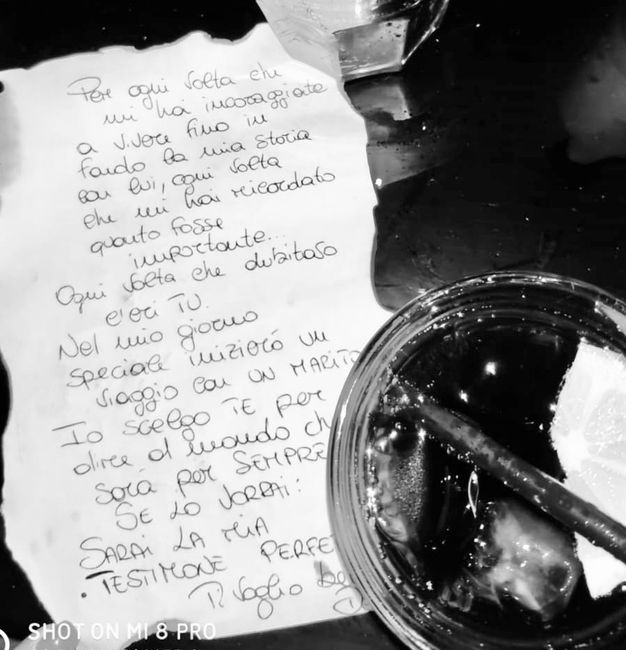 Per ogni volta che
mi hai incoraggiata
a vivere fino in
fondo la mia storia
con lui, ogni volta
che mi hai ricordato
quanto fosse
importante...
Ogni volta che dubitavo
c'eri TU.
Nel mio giorno
speciale inizierò un
viaggio con UN MARITO
Io scelgo TE per
dire al mondo ch
sarà per SEMPRE
SE LO VORRAI:
SARAI LA MIA
TESTIMONE PERFE
Ti voglio be
SHOT ON MI 8 PRO